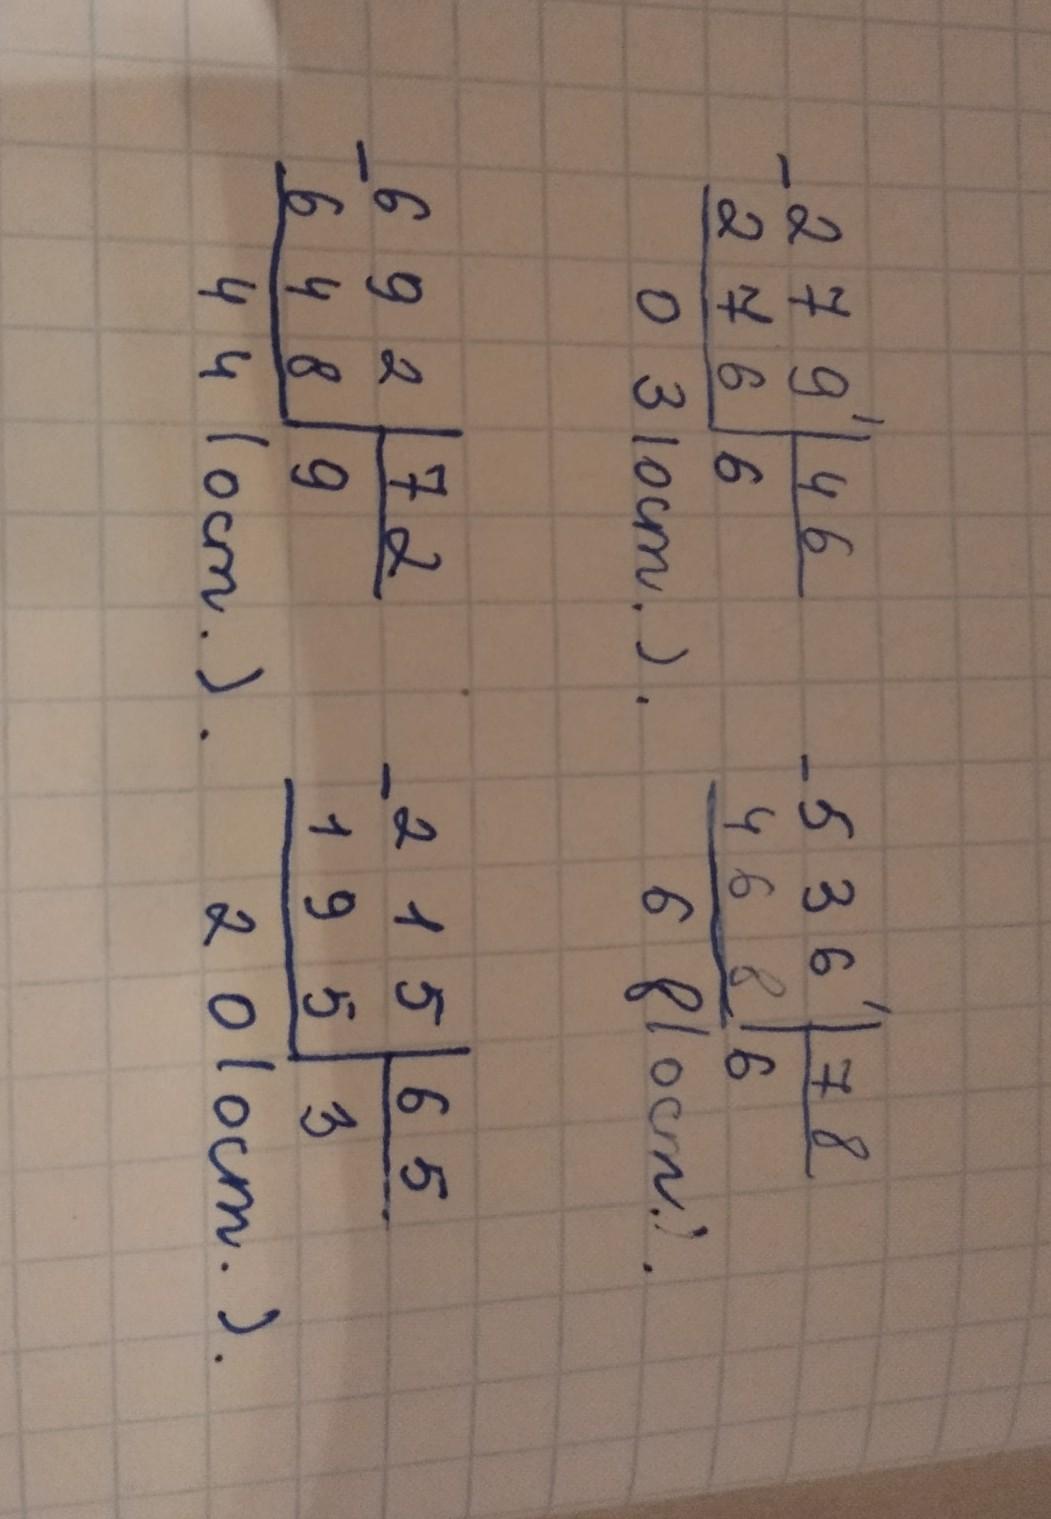 -279 | 46
276 | 6
03 (ост.).
-536 | 78
468 | 6
68 (ост.).
-692 | 72
648 | 9
44 (ост.).
-215 | 65
195 | 3
20 (ост.).